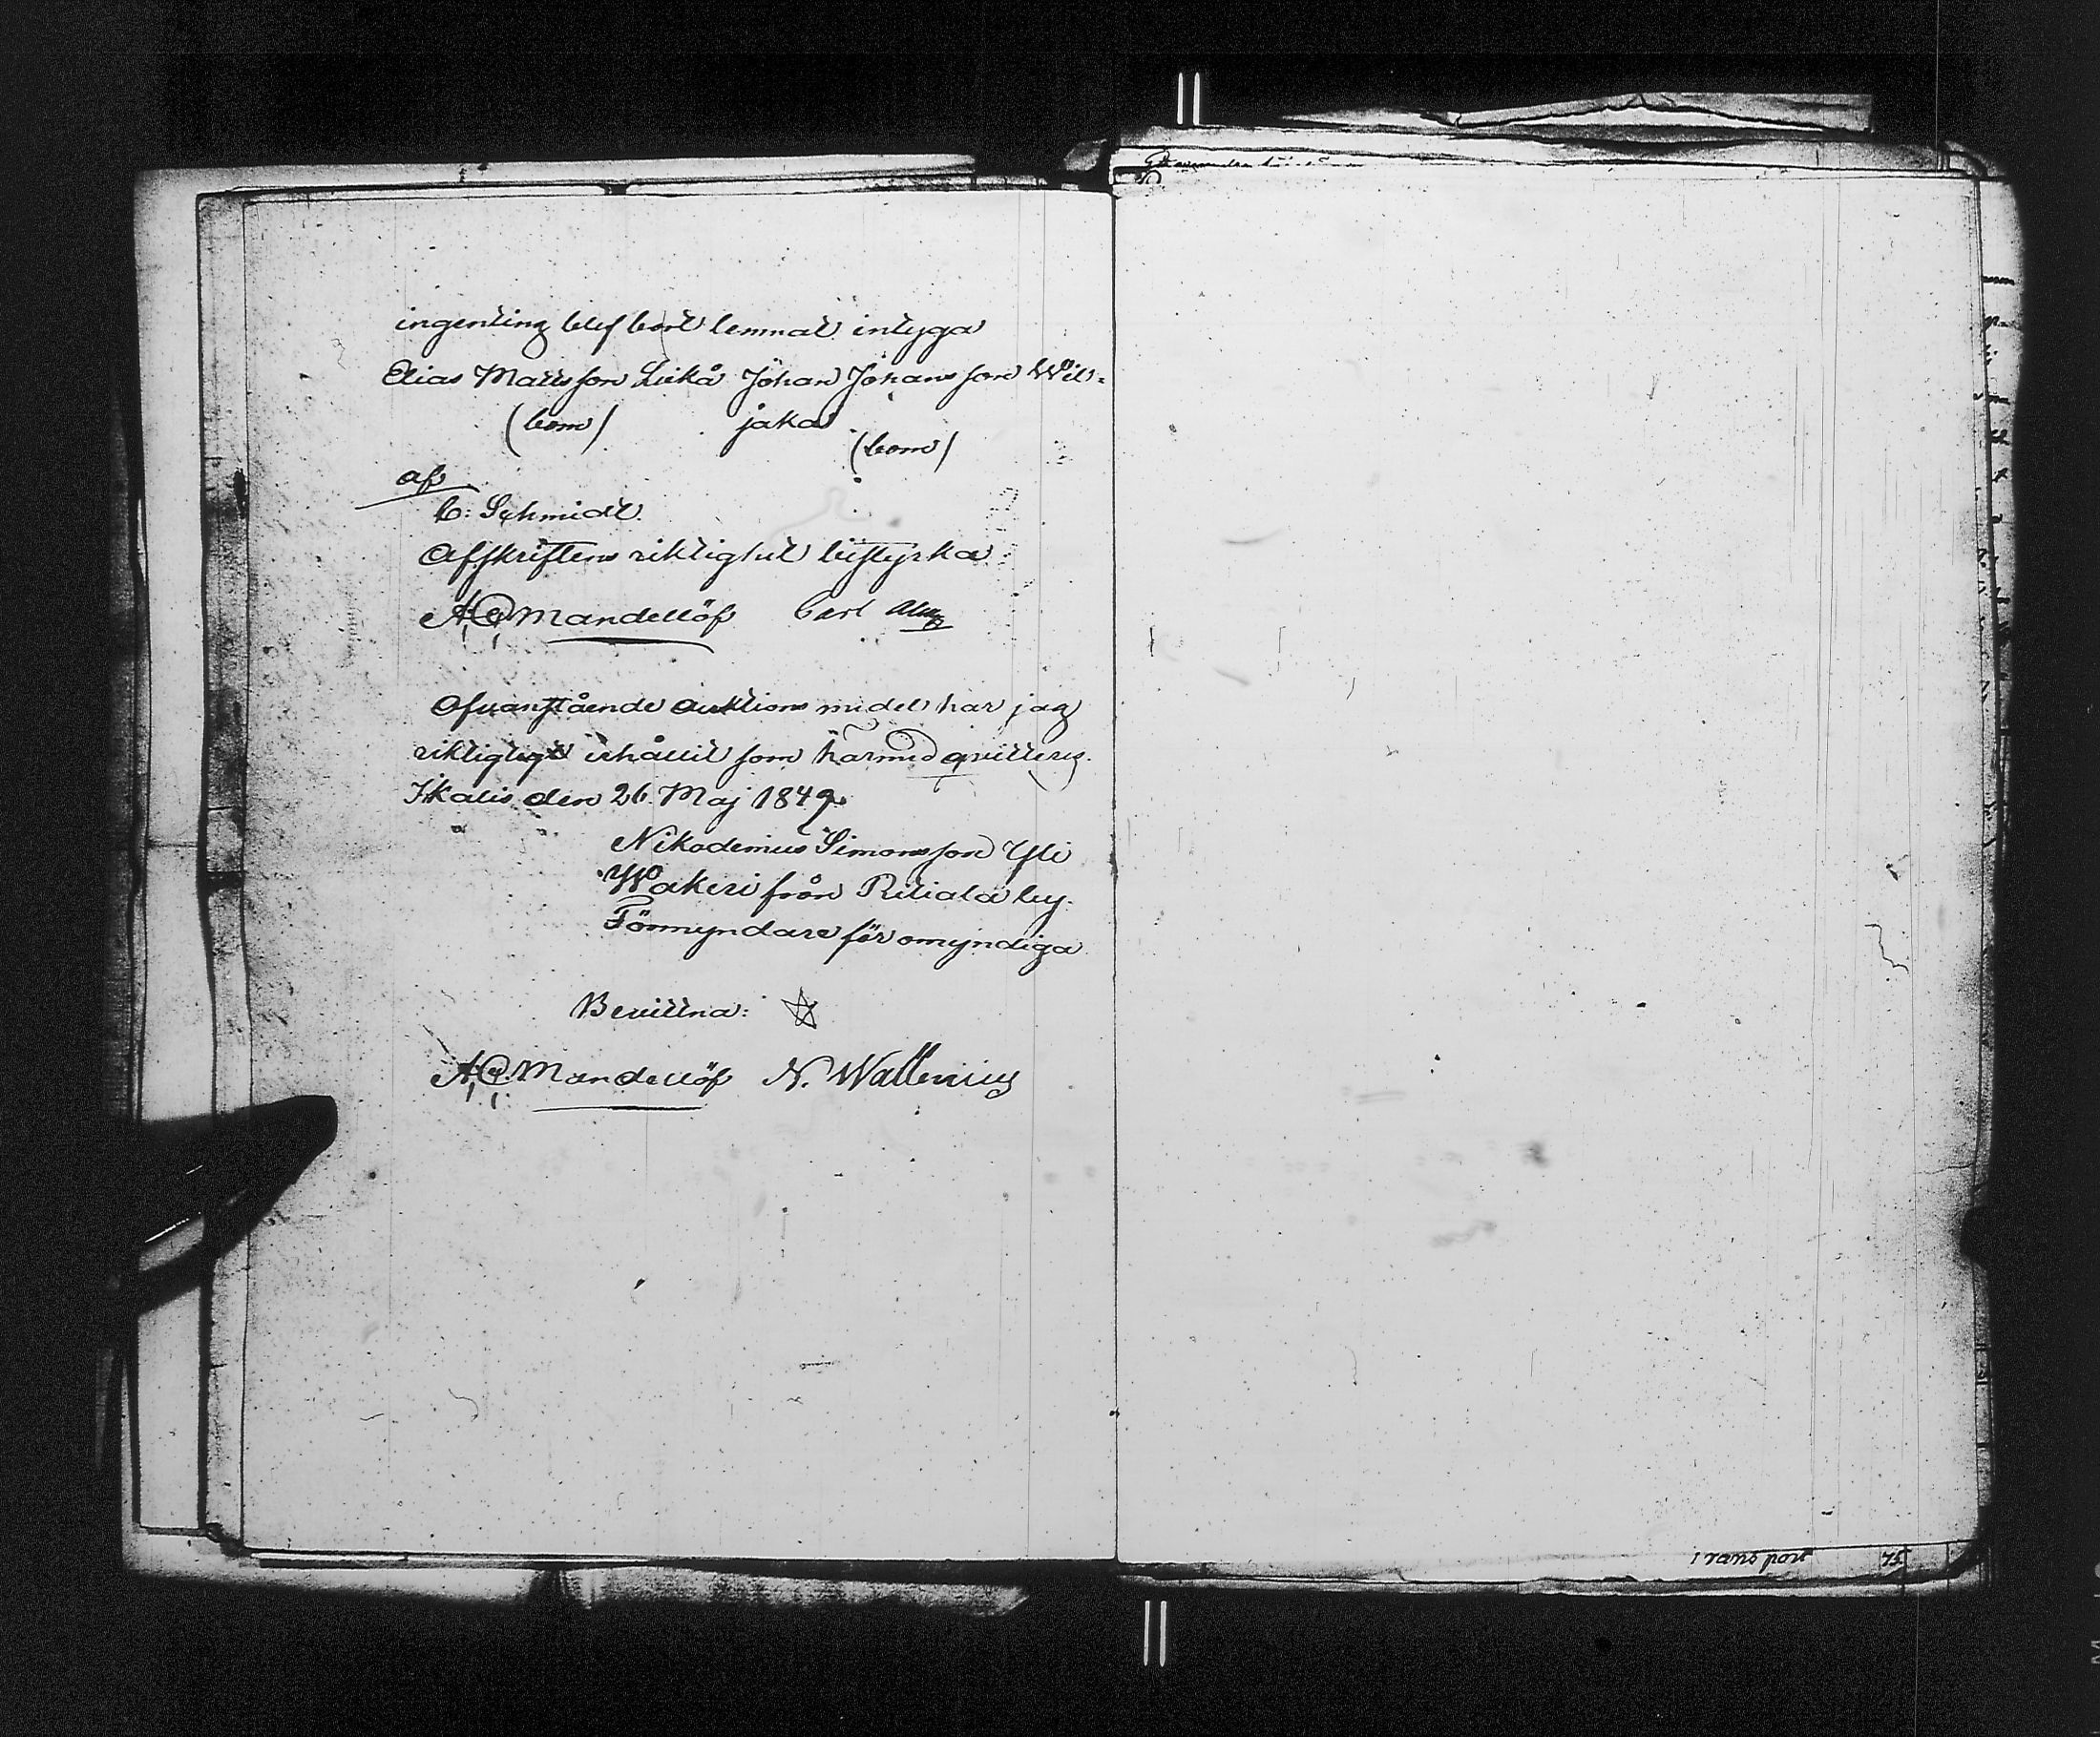 ingenting blef bort lemnat intyga
Elias Mattsson Lukå Johan Johansson Wil=
(bom) jaka
(bom)
af
C: Schmidt.
Afskriftens riktighet bestyrka
A. C. Mandellöf Carl
Ofvanstående auktions medel har jag
riktigligt erhållit som härmed qvitteras.
Ikalis den 26 Maj 1849.
Nikodemus Simonsson Yli
Wakeri från Riitiala by.
Förmyndare för omyndiga
Bevittna:
A. C. Mandellöf N. Wallenius
Transport 75